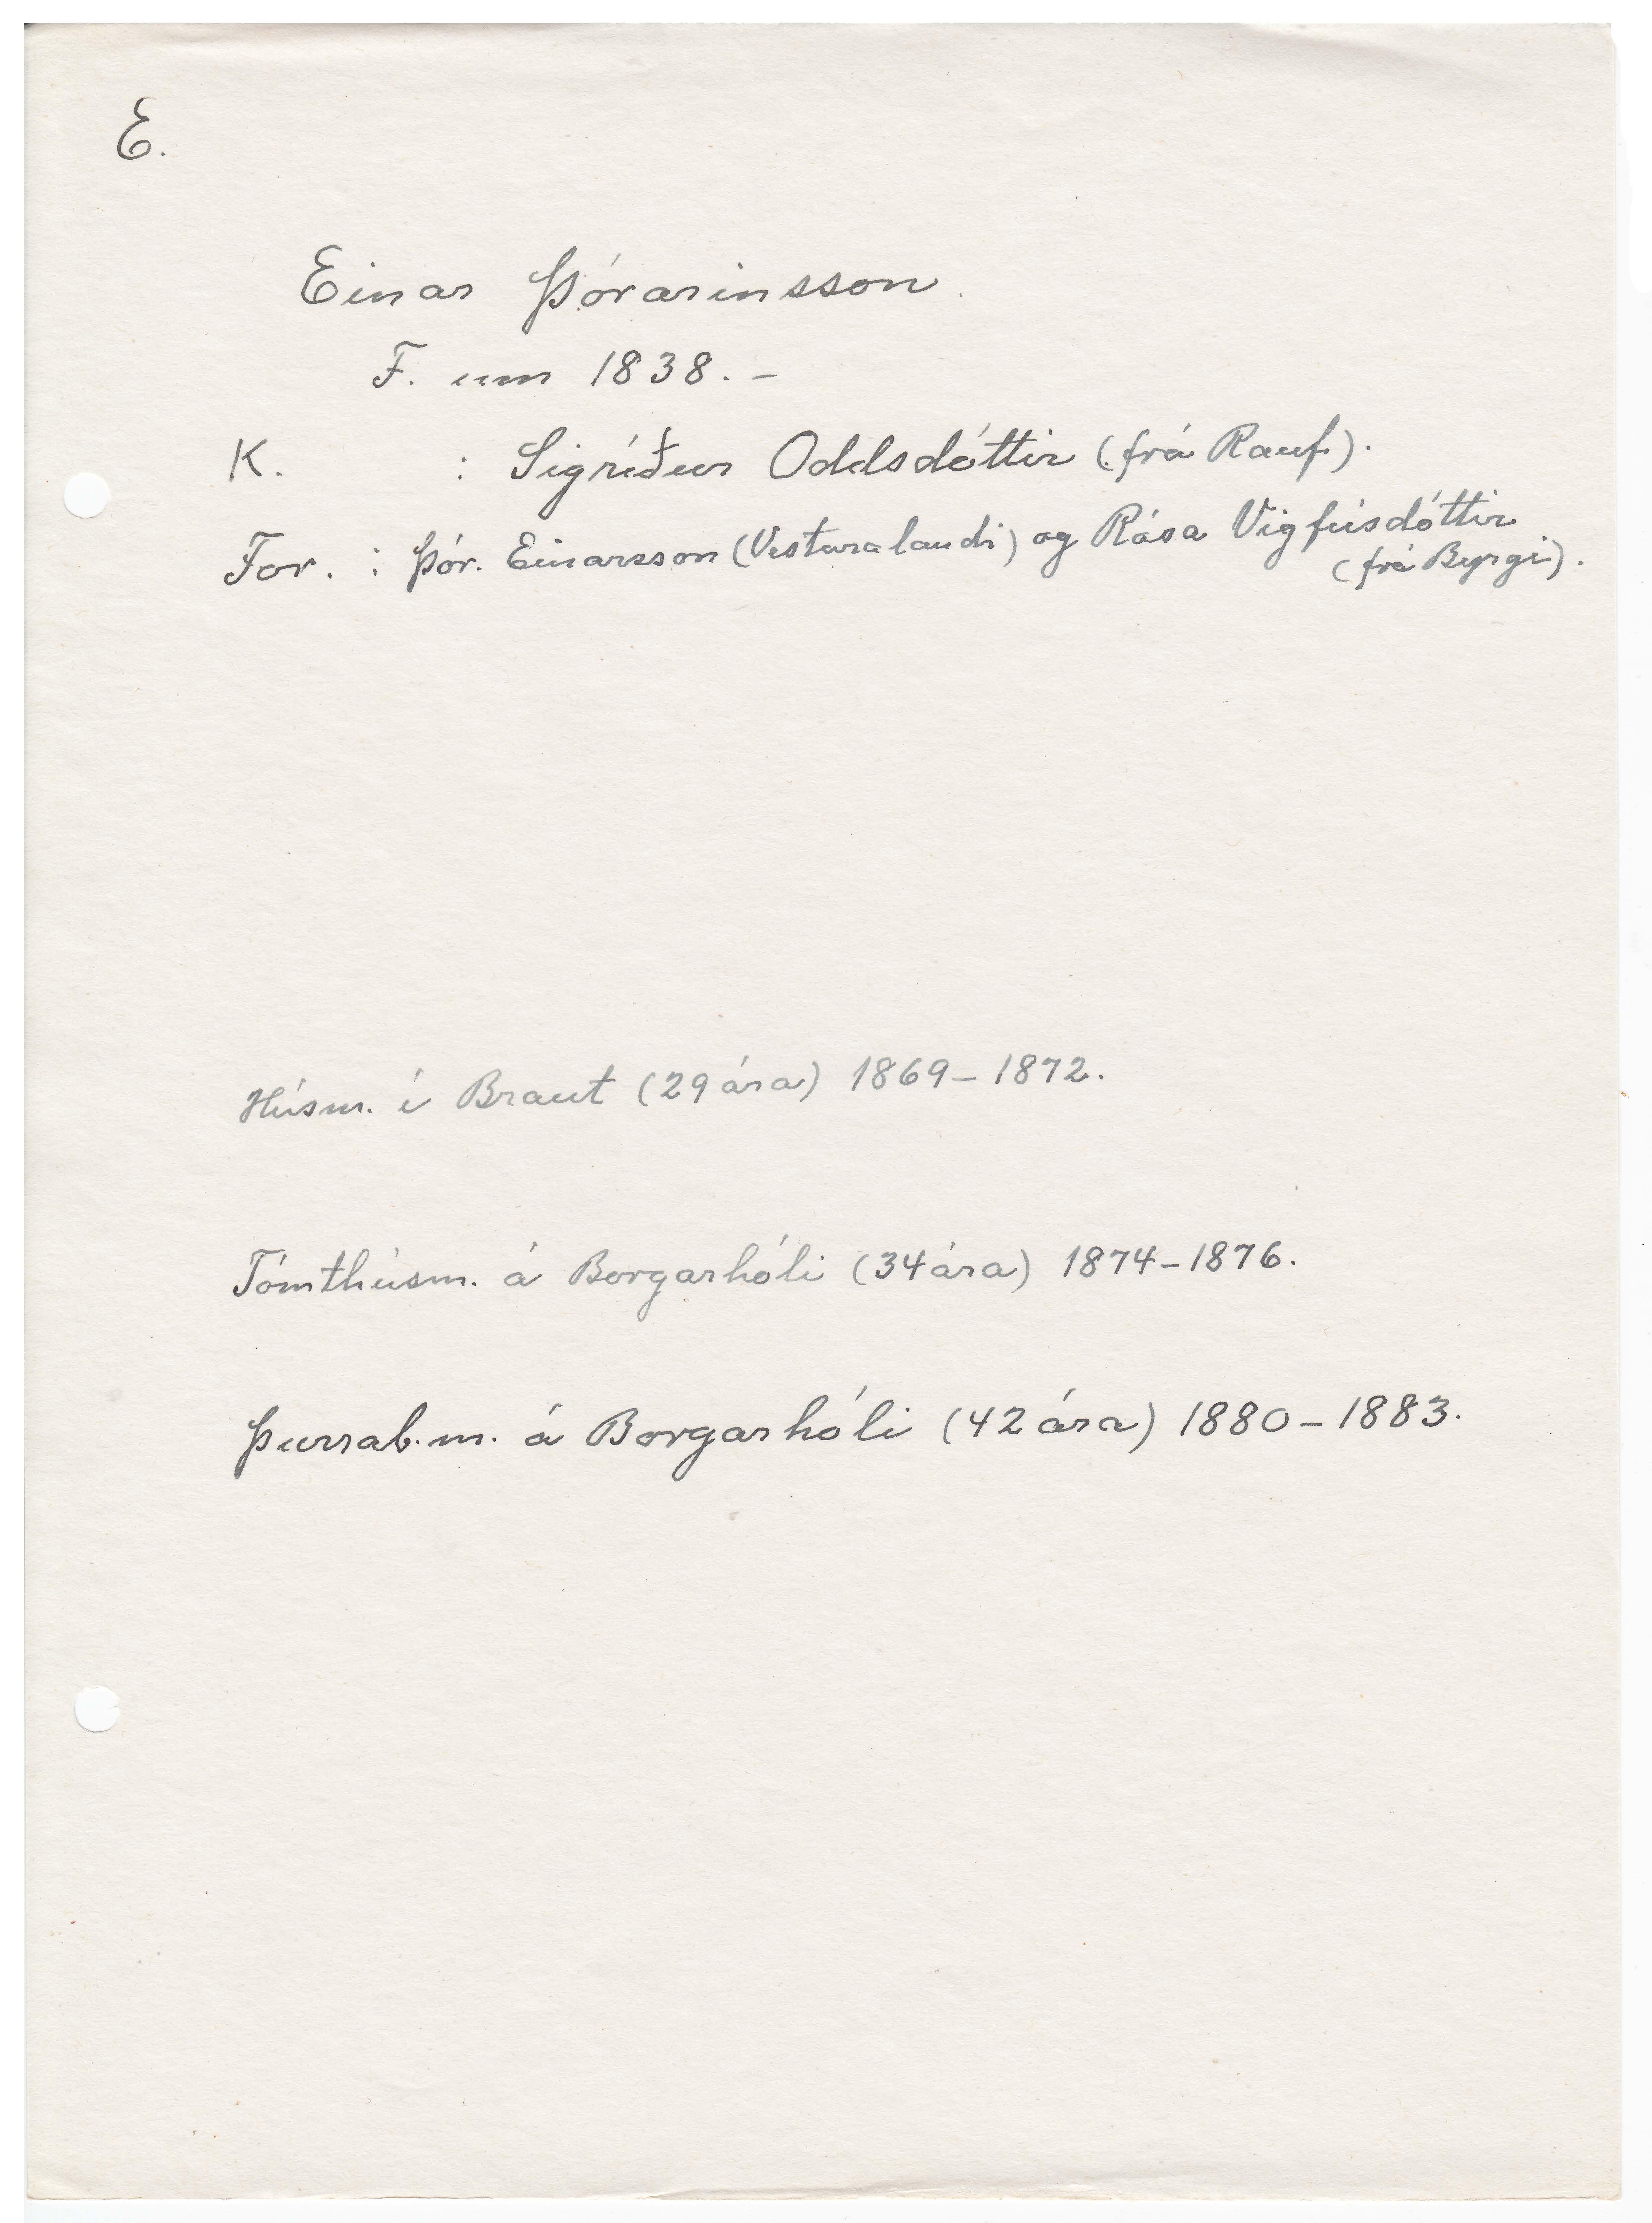 E.
Einar Þórarinsson.
F. um 1838. –
K. : Sigríður Oddsdóttir (frá Rauf).
For. : Þór. Einarsson (Vesturalandi) og Rósa Vigfúsdóttir
(frá Byrgi).
Húsm. í Braut (29 ára) 1869 – 1872.
Tómthúsm. á Borgarhóli (34 ára) 1874 – 1876.
Þurrab.m. á Borgarhóli (42 ára) 1880 – 1883.